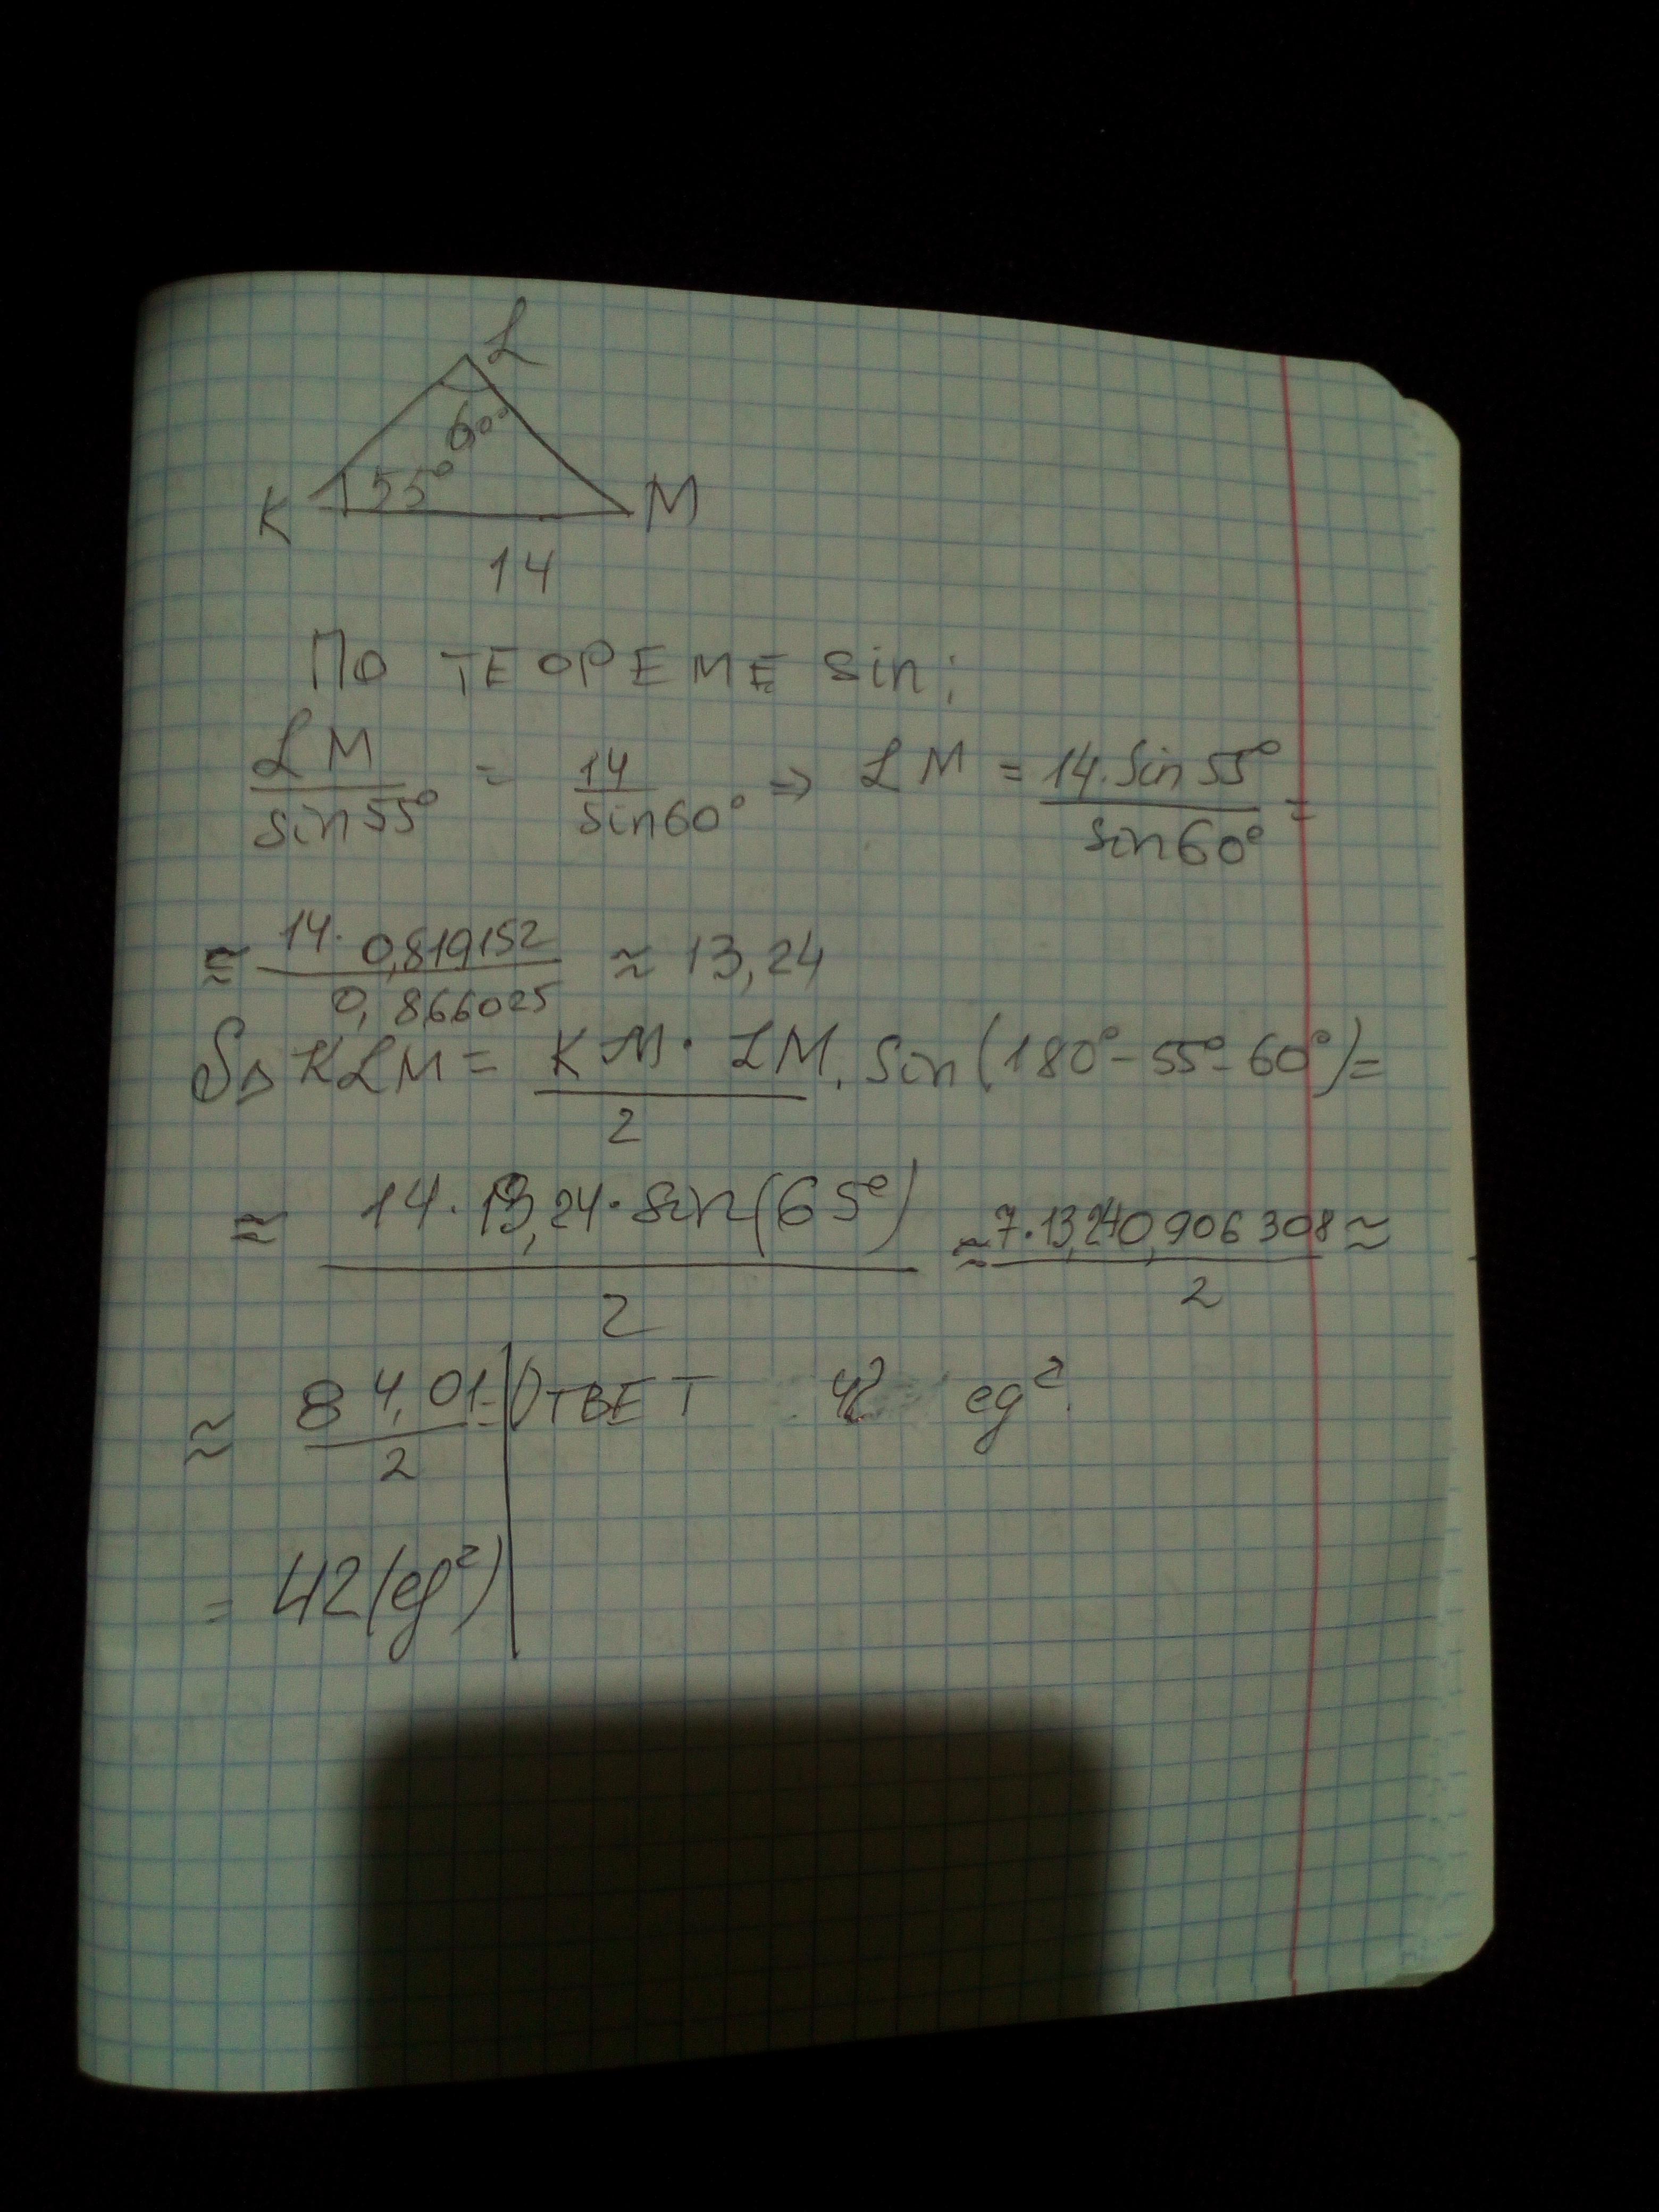 L
60°
55°
K
M
14
По ТЕОРЕМЕ sin:
LM/sin55° = 14/sin60° ⇒ LM = 14·sin55°/sin60° =
≈ 14·0,819152/0,866025 ≈ 13,24
S△KLM = KM·LM/2 · sin(180°-55°-60°)=
≈ 14·13,24·sin(65°)/2 ≈ 7·13,24·0,906308/2 ≈
≈ 84,01/2 =
= 42(eg²)
ОТВЕТ 42 eg².